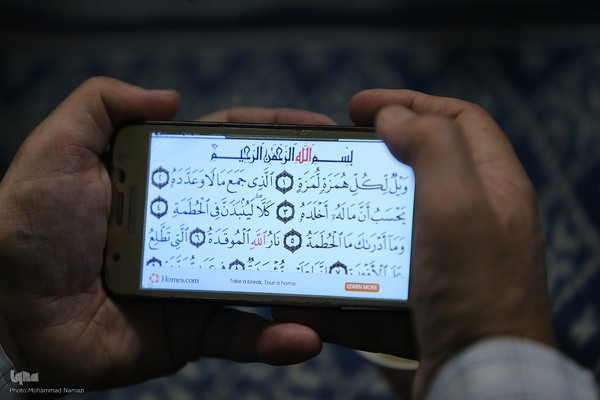 بِسْمِ اللَّهِ الرَّحْمَنِ الرَّحِيمِ
وَيْلٌ لِكُلِّ هُمَزَةٍ لُمَزَةٍ ١ الَّذِي جَمَعَ مَالًا وَعَدَّدَهُ ٢
يَحْسَبُ أَنَّ مَالَهُ أَخْلَدَهُ ٣ كَلَّا لَيُنْبَذَنَّ فِي الْحُطَمَةِ ٤
وَمَا أَدْرَاكَ مَا الْحُطَمَةُ ٥ نَارُ اللَّهِ الْمُوقَدَةُ ٦ الَّتِي تَطَّلِعُ
Homes.com Take a break, Tour a home LEARN MORE
iqna
Photo:Mohammad Namazi